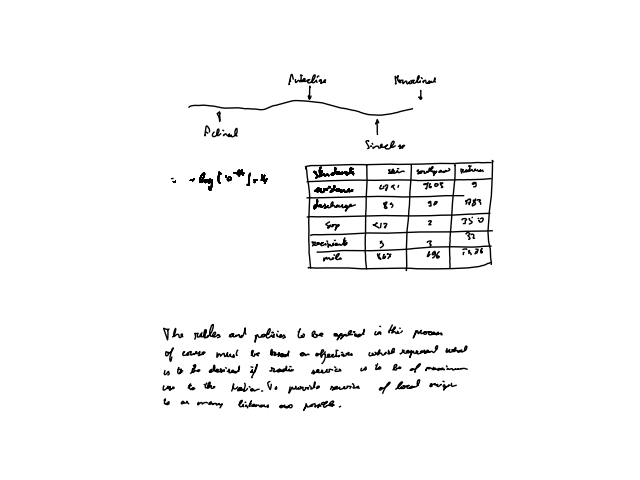 Anteclise Monoclinal
Aclinal
Syneclise
= - log [10^-4] = 4
standards skin southpaw return
avoidance 9603 9
discharge 83 90 1783
sop <17 2 350
recipient 3 3 32
mile 807 696
The rules and policies to be applied in this process
of course must be based on objectives which represent what
is to be desired if radio service is to be of maximum
use to the Nation. To provide service of local origin
to as many listeners as possible.